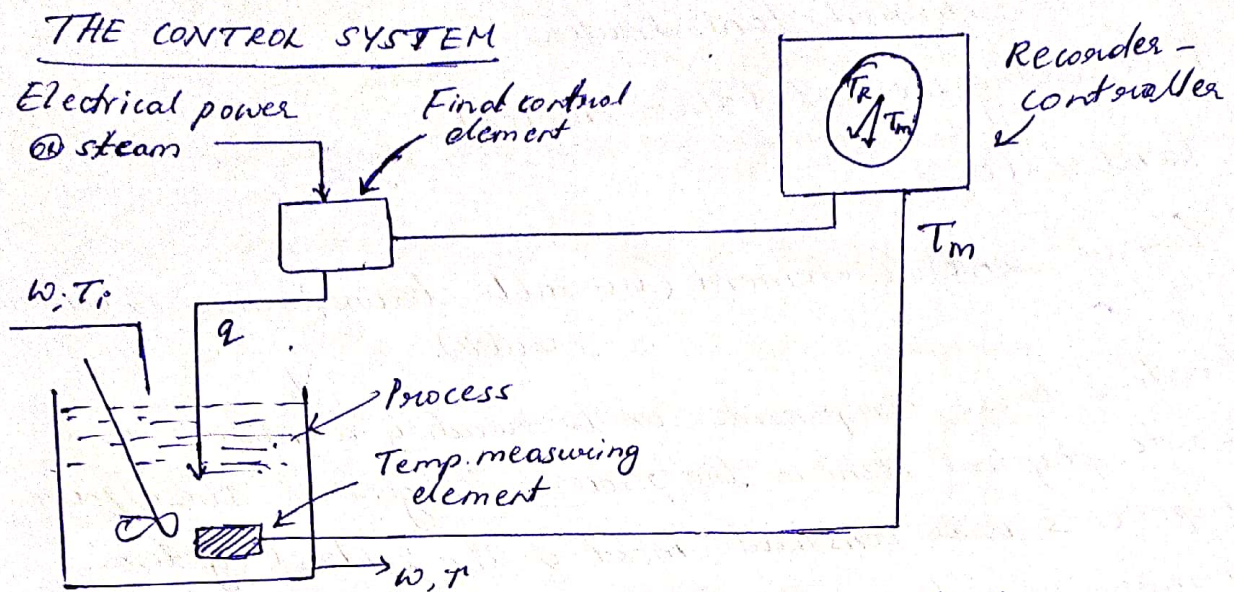 THE CONTROL SYSTEM
Electrical power
OR steam
Final control
element
Recorder -
controller
TR
Tm
Tm
w, Ti
q
Process
Temp. measuring
element
w, T